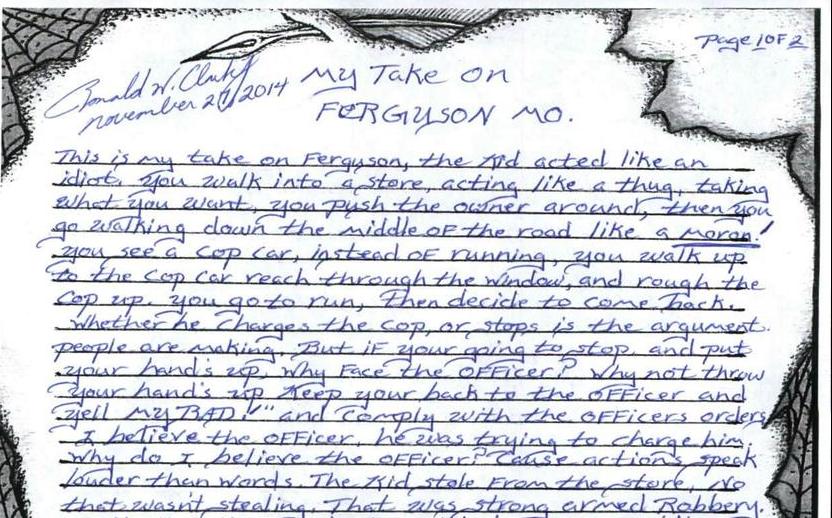 Page 1 OF 2
Ronald W. Clark Jr
november 2 2014
My Take on
FERGUSON MO.
This is my take on Ferguson, the Kid acted like an
idiot. you walk into a store, acting like a thug, taking
what you want, you push the owner around, then you
go walking down the middle of the road like a moron!
you see a cop car, instead of running, you walk up
to the cop car reach through the window, and rough the
cop up. you go to run, then decide to come back.
Whether he charges the cop, or stops is the argument
people are making. But if your going to stop, and put
your hand's up, Why Face the OFFicer? Why not throw
your hand's up Keep your back to the OFFicer and
yell "MY BAD!" and comply with the OFFicers orders
I believe the OFFicer, he was trying to charge him.
Why do I believe the OFFicer? Cause actions speak
louder than words. The Kid stole From the store, No
that wasn't stealing. That was strong armed Robbery.